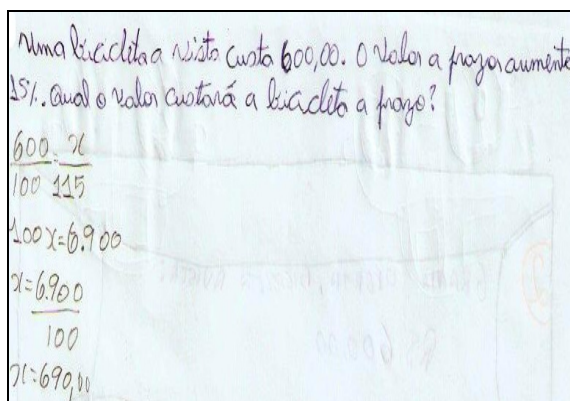 Uma bicicleta a vista custa 600,00. O valor a prazo aumenta
15%. Qual o valor custará a bicicleta a prazo?
600 = x
100 115
100x=6.900
x=6.900
100
x=690,00
R$ 600,00